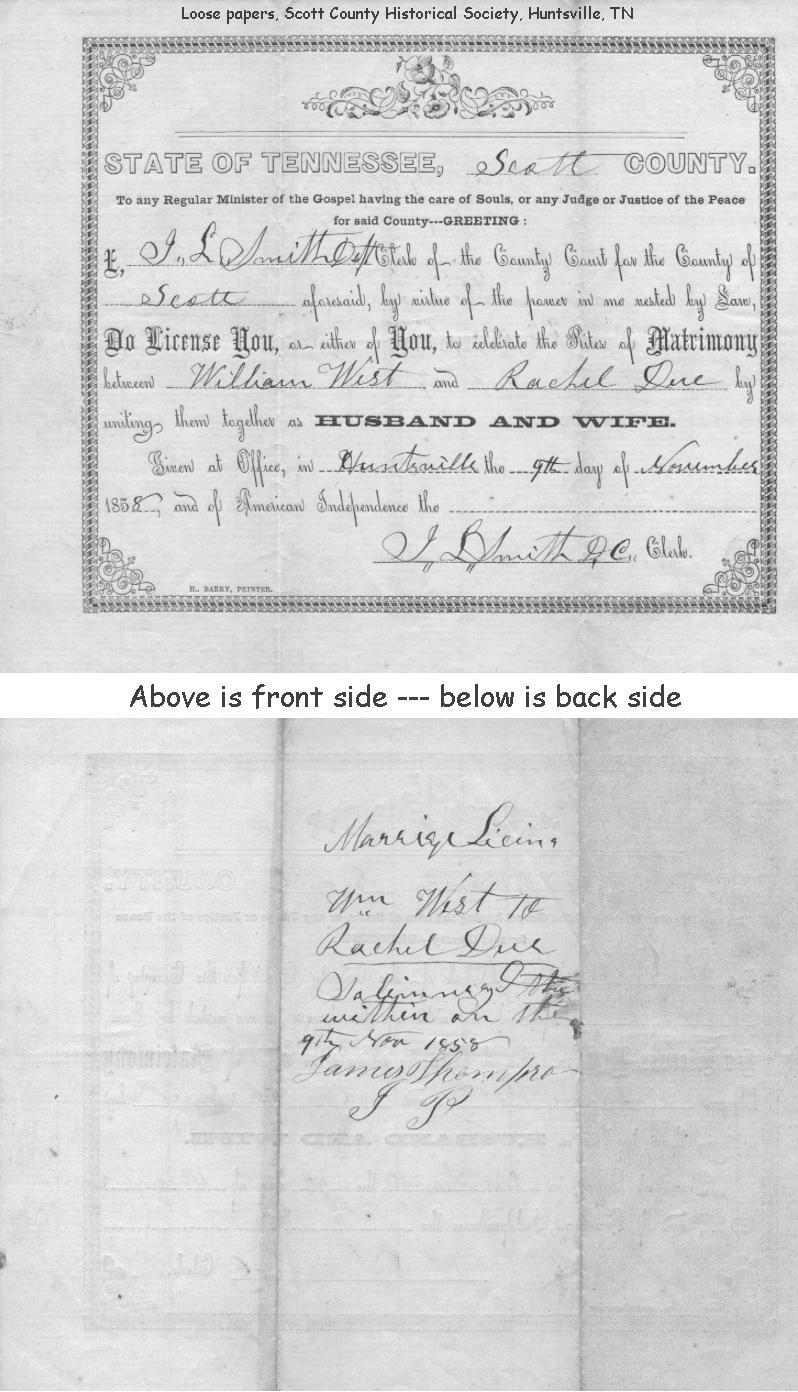 Loose papers, Scott County Historical Society, Huntsville, TN
STATE OF TENNESSEE, Scott COUNTY.
To any Regular Minister of the Gospel having the care of Souls, or any Judge or Justice of the Peace
for said County---GREETING:
I, J. L. Smith Dept Clerk of the County Court for the County of
Scott aforesaid, by virtue of the power in me vested by Law,
Do License You, or either of You, to celebrate the Rites of Matrimony
between William West and Rachel Due by
uniting them together as HUSBAND AND WIFE.
Given at Office, in Huntsville the 9th day of November
1858, and of American Independence the
J. L. Smith D.C. Clerk.
H. BARRY, PRINTER.
Above is front side --- below is back side
Marrige Licins
Wm West to
Rachel Due
the
within on the
9th Nov 1858
James Thompson
J P